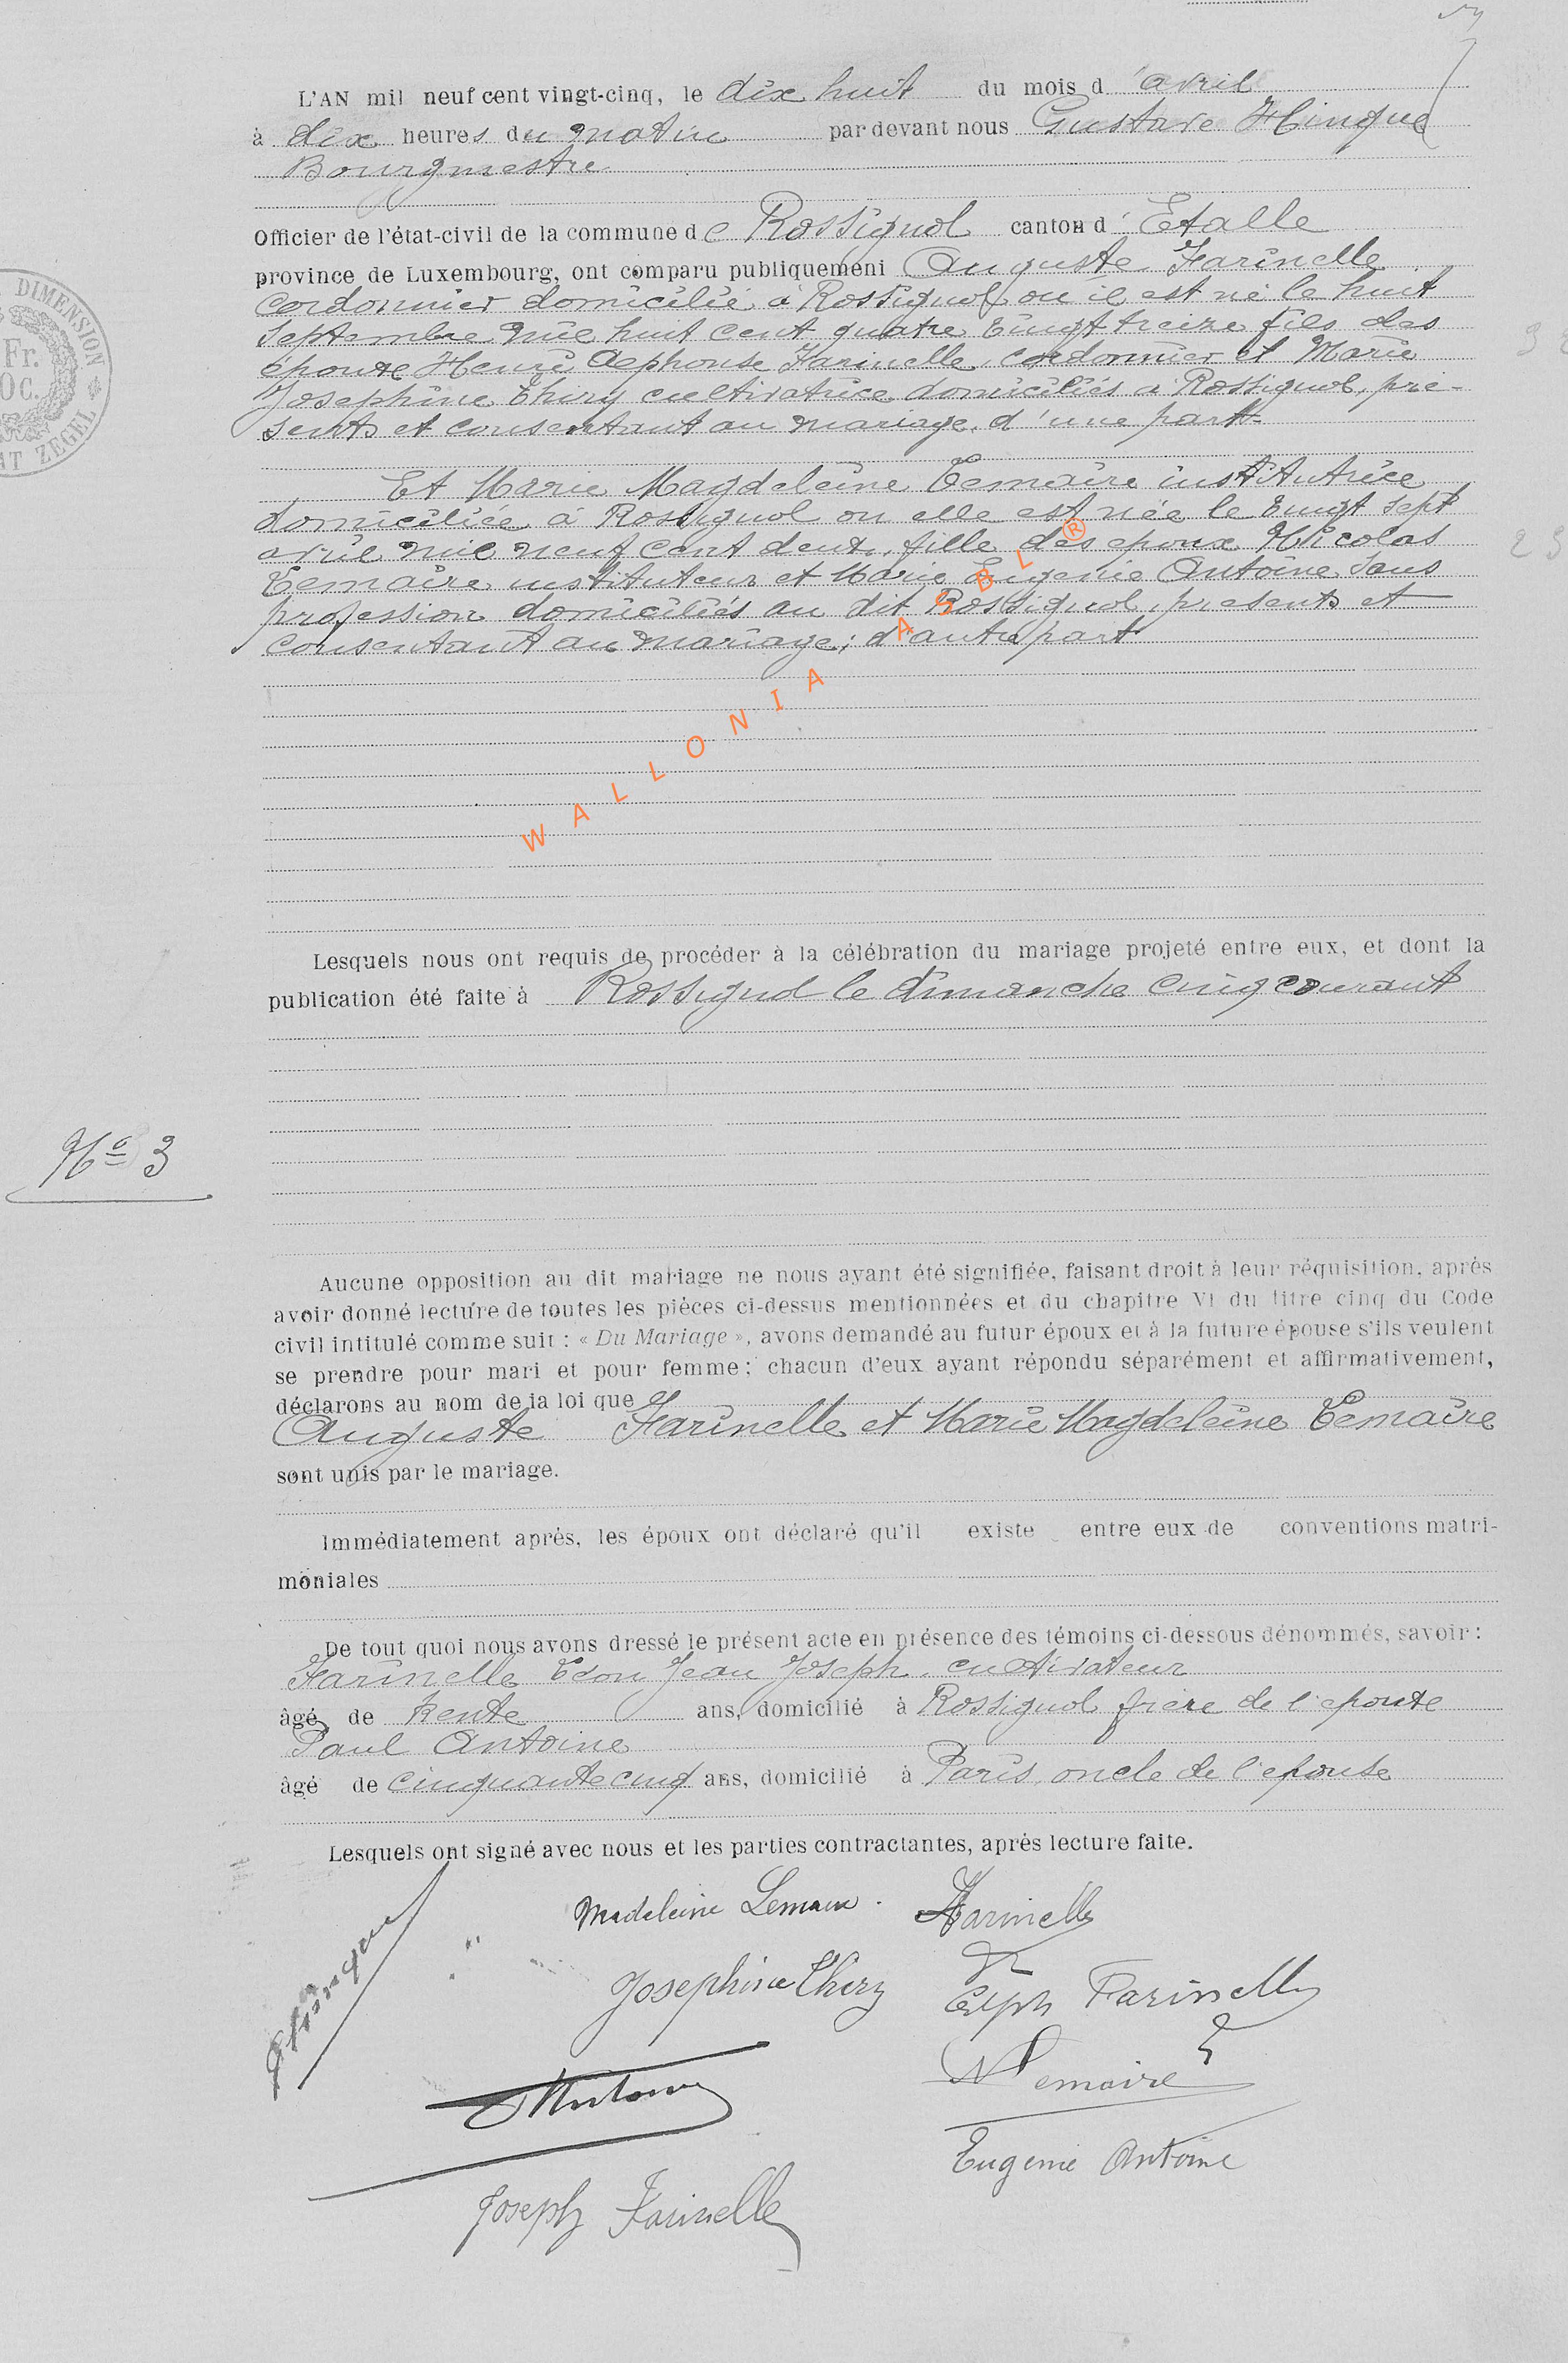 L'AN mil neuf cent vingt-cinq, le dix huit du mois d'avril
à dix heures du matin par devant nous Gustave Hinque
Bourgmestre
Officier de l'état-civil de la commune de Rossignol canton d'Etalle
province de Luxembourg, ont comparu publiquement Auguste Farinelle
cordonnier domicilié à Rossignol où il est né le huit
septembre mil huit cent quatre vingt treize fils des
époux Henri Alphonse Farinelle, cordonnier et Marie
Josephine Thiry cultivatrice domiciliés à Rossignol, pré-
sents et consentant au mariage, d'une part.
Et Marie Magdeleine Lemaire institutrice
domiciliée à Rossignol où elle est née le vingt sept
avril mil neuf cent deux, fille des époux Nicolas
Lemaire instituteur et Marie Eugenie Antoine sans
profession domiciliés au dit Rossignol, présents et
consentant au mariage; d'autre part
WALLONIA ASBL ®
Lesquels nous ont requis de procéder à la célébration du mariage projeté entre eux, et dont la
publication été faite à Rossignol le dimanche cinq courant
No 3
Aucune opposition au dit mariage ne nous ayant été signifiée, faisant droit à leur réquisition, après
avoir donné lecture de toutes les pièces ci-dessus mentionnées et du chapitre VI du titre cinq du Code
civil intitulé comme suit : « Du Mariage », avons demandé au futur époux et à la future épouse s'ils veulent
se prendre pour mari et pour femme ; chacun d'eux ayant répondu séparément et affirmativement,
déclarons au nom de la loi que
Auguste Farinelle et Marie Magdeleine Lemaire
sont unis par le mariage.
Immédiatement après, les époux ont déclaré qu'il existe entre eux de conventions matri-
moniales
De tout quoi nous avons dressé le présent acte en présence des témoins ci-dessous dénommés, savoir :
Farinelle Léon Jean Joseph, cultivateur
âgé de trente ans, domicilié à Rossignol frère de l'époux
Paul Antoine
âgé de cinquante cinq ans, domicilié à Paris, oncle de l'épouse
Lesquels ont signé avec nous et les parties contractantes, après lecture faite.
Madeleine Lemaire. Farinelle
GHinque
Josephine Thiry Alph Farinelle
Antoine NLemaire
Eugenie Antoine
Joseph Farinelle
DIMENSION
Fr.
0c.
ZEGEL